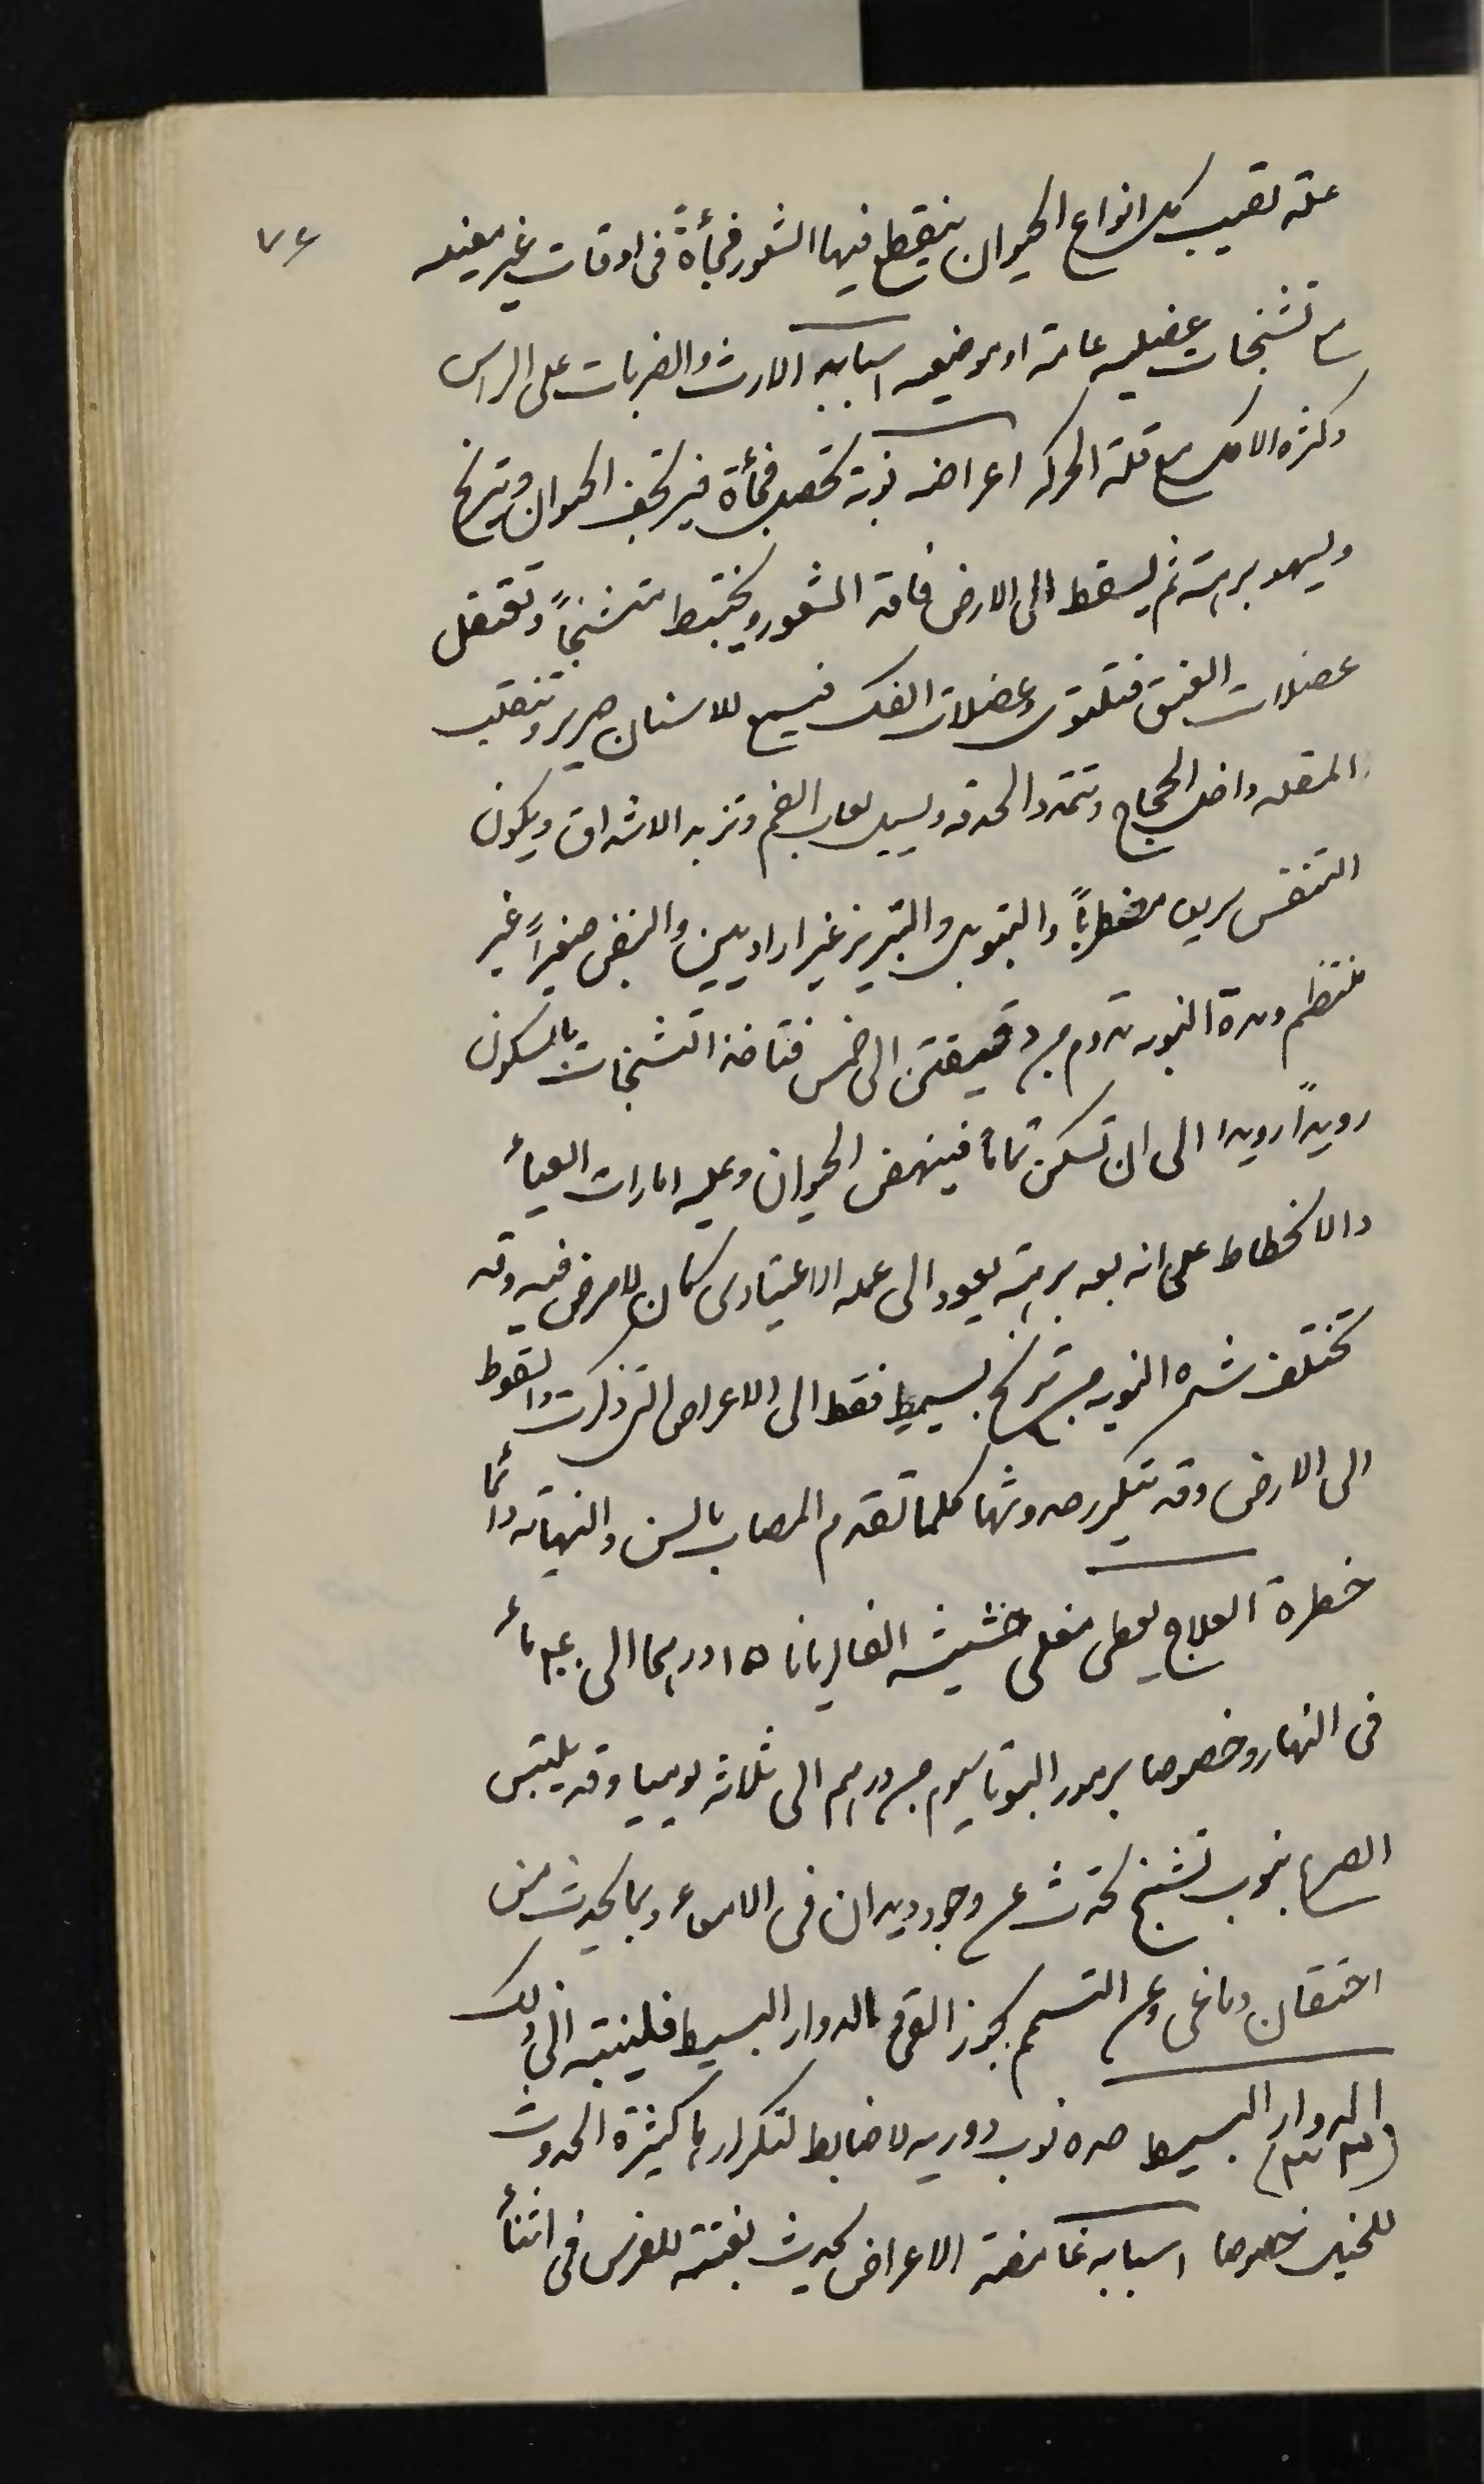 ٧٤
علة تصيب كل انواع الحيوان ينقطع فيها الشعور فجأةً فى اوقات غير معينه
مع تشنجات عضليه عامة او موضعيه اسبابه الارث والضربات على الراس
وكثرة الاكل مع قلة الحركه اعراضه نوبة تحصل فجأة فيرتجف الحيوان ويترنح
وليهو برهة ثم يسقط الى الارض فاقد الشعور ويختبط متشنجاً وتعتقل
عضلات العنق فتلتوى وعضلات الفك فيسمع للاسنان صرير وتنقلب
المقله داخل الحجاج وتتمدد الحدقه ويسيل لعاب الفم وتزبد الاشداق ويكون
التنفس سريعا مضطرباً والتبويل والتبريز غير اراديين والنبض صغيراً غير
منتظم ومدة النوبه تدوم من دقيقتين الى خمس فتاخذ التشنجات بالسكون
رويداً رويدا الى ان تسكن تماماً فينهض الحيوان وعليه امارات العياء
والانحطاط على انه بعد برهة يعود الى عمله الاعتيادى كمان لا مرض فيه وقد
تختلف شدة النوبه من ترنح بسيط فقط الى الاعراض التى ذكرت والسقوط
الى الارض وقد يتكرر حدوثها كلما تقدم المصاب بالسن والنهاية دائما
خطرة العلاج يعطى مغلى حشيشة الفاليريانا ١٥ درهما الى ماء
فى النهار وخصوصا برمور البوتاسيوم من درهم الى ثلاثة يوميا وقد يلتبس
الصرع بنوب تشنج تحدث عن وجود ديدان فى الامعاء وبما يحدث من
احتقان دماغى وعن التسمم بجوز القئ بالدوار البسيط فلينتبه الى ذلك
الدوار البسيط حده نوب دوريه لا ضابط لتكرارها كثيرة الحدوث
للخيل خصوصا اسبابه غامضة الاعراض يحدث بغتة للفرس فى اثناء